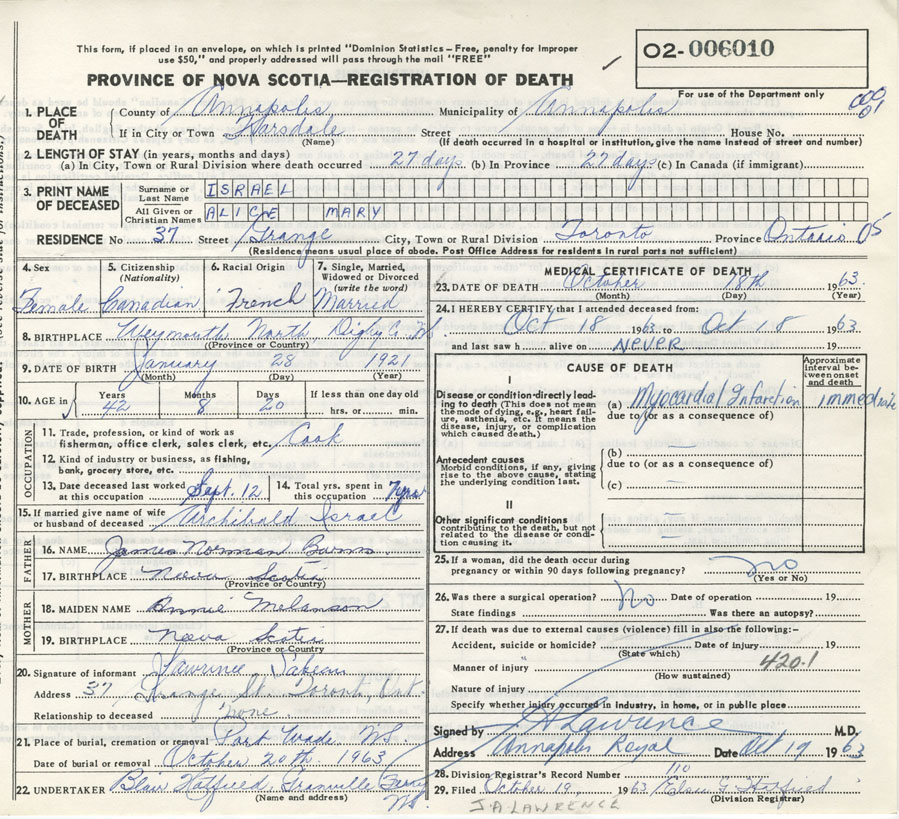 This form, if placed in an envelope, on which is printed "Dominion Statistics – Free, penalty for improper
use $50," and properly addressed will pass through the mail "FREE"
PROVINCE OF NOVA SCOTIA—REGISTRATION OF DEATH
O2-006010
For use of the Department only
1. PLACE OF DEATH
County of Annapolis Municipality of Annapolis
If in City or Town Karsdale Street House No.
(Name) (If death occurred in a hospital or institution, give the name instead of street and number)
2. LENGTH OF STAY (in years, months and days)
(a) In City, Town or Rural Division where death occurred 27 days (b) In Province 27 days (c) In Canada (if immigrant)
3. PRINT NAME OF DECEASED
Surname or Last Name ISRAEL
All Given or Christian Names ALICE MARY
RESIDENCE No 37 Street Grange City, Town or Rural Division Toronto Province Ontario 05
(Residence means usual place of abode. Post Office Address for residents in rural parts not sufficient)
4. Sex
Female
5. Citizenship
(Nationality)
Canadian
6. Racial Origin
French
7. Single, Married,
Widowed or Divorced
(write the word)
Married
8. BIRTHPLACE Weymouth North Digby Co. NS
(Province or Country)
9. DATE OF BIRTH January 28 1921
(Month) (Day) (Year)
10. AGE in Years Months Days If less than one day old
42 8 20 hrs. or min.
OCCUPATION
11. Trade, profession, or kind of work as
fisherman, office clerk, sales clerk, etc. Cook
12. Kind of industry or business, as fishing,
bank, grocery store, etc.
13. Date deceased last worked
at this occupation Sept. 12
14. Total yrs. spent in
this occupation 7 yrs
15. If married give name of wife
or husband of deceased Archibald Israel
FATHER
16. NAME James Norman
17. BIRTHPLACE Nova Scotia
(Province or Country)
MOTHER
18. MAIDEN NAME Annie Melanson
19. BIRTHPLACE Nova Scotia
(Province or Country)
20. Signature of informant Lawrence
Address 37 Grange St. Toronto, Ont.
Relationship to deceased None
21. Place of burial, cremation or removal Port Wade NS
Date of burial or removal October 20th 1963
22. UNDERTAKER Blair Hatfield, Granville Ferry
(Name and address) NS.
MEDICAL CERTIFICATE OF DEATH
23. DATE OF DEATH October 18th 1963.
(Month) (Day) (Year)
24. I HEREBY CERTIFY that I attended deceased from:
Oct 18 1963 to Oct 18 1963.
and last saw h alive on NEVER 19
CAUSE OF DEATH
Approximate
interval be-
tween onset
and death
I
Disease or condition directly lead-
ing to death (This does not mean
the mode of dying, e.g., heart fail-
ure, asthenia, etc. It means the
disease, injury, or complication
which caused death.)
(a) Myocardial Infarction immediate
due to (or as a consequence of)
Antecedent causes
Morbid conditions, if any, giving
rise to the above cause, stating
the underlying condition last.
(b) —
due to (or as a consequence of)
(c) —
II
Other significant conditions
contributing to the death, but not
related to the disease or condi-
tion causing it.
25. If a woman, did the death occur during
pregnancy or within 90 days following pregnancy? no
(Yes or No)
26. Was there a surgical operation? No Date of operation 19
State findings Was there an autopsy?
27. If death was due to external causes (violence) fill in also the following:–
Accident, suicide or homicide? Date of injury 19
(State which)
420.1
Manner of injury
(How sustained)
Nature of injury
Specify whether injury occurred in industry, in home, or in public place
Signed by Lawrence M.D.
Address Annapolis Royal Date Oct 19 1963
28. Division Registrar's Record Number 110
29. Filed October 19, 1963 Elsie G. Hatfield
(Division Registrar)
J.A. LAWRENCE